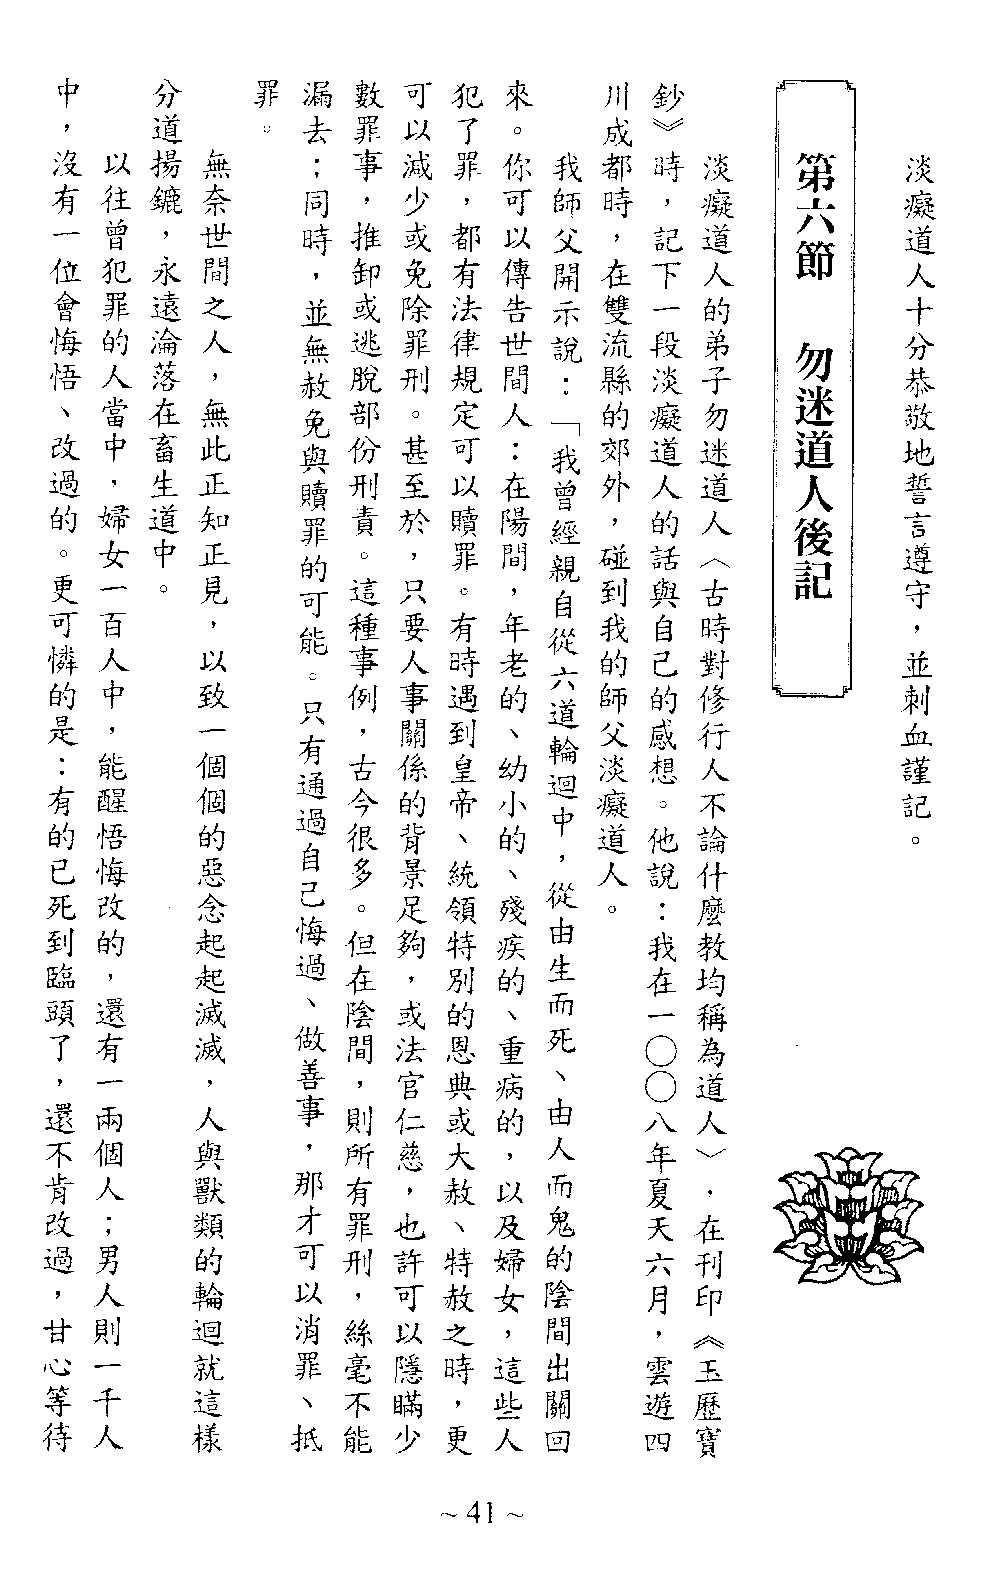 淡癡道人十分恭敬地誓言遵守，並刺血謹記。
第六節　勿迷道人後記
淡癡道人的弟子勿迷道人〈古時對修行人不論什麼教均稱為道人〉，在刊印《玉歷寶
鈔》時，記下一段淡癡道人的話與自己的感想。他說：我在一〇〇八年夏天六月，雲遊四
川成都時，在雙流縣的郊外，碰到我的師父淡癡道人。
我師父開示說：「我曾經親自從六道輪迴中，從由生而死、由人而鬼的陰間出關回
來。你可以傳告世間人：在陽間，年老的、幼小的、殘疾的、重病的，以及婦女，這些人
犯了罪，都有法律規定可以贖罪。有時遇到皇帝、統領特別的恩典或大赦、特赦之時，更
可以減少或免除罪刑。甚至於，只要人事關係的背景足夠，或法官仁慈，也許可以隱瞞少
數罪事，推卸或逃脫部份刑責。這種事例，古今很多。但在陰間，則所有罪刑，絲毫不能
漏去；同時，並無赦免與贖罪的可能。只有通過自己悔過、做善事，那才可以消罪、抵
罪。
無奈世間之人，無此正知正見，以致一個個的惡念起起滅滅，人與獸類的輪迴就這樣
分道揚鑣，永遠淪落在畜生道中。
以往曾犯罪的人當中，婦女一百人中，能醒悟悔改的，還有一兩個人；男人則一千人
中，沒有一位會悔悟、改過的。更可憐的是：有的已死到臨頭了，還不肯改過，甘心等待
~ 41 ~